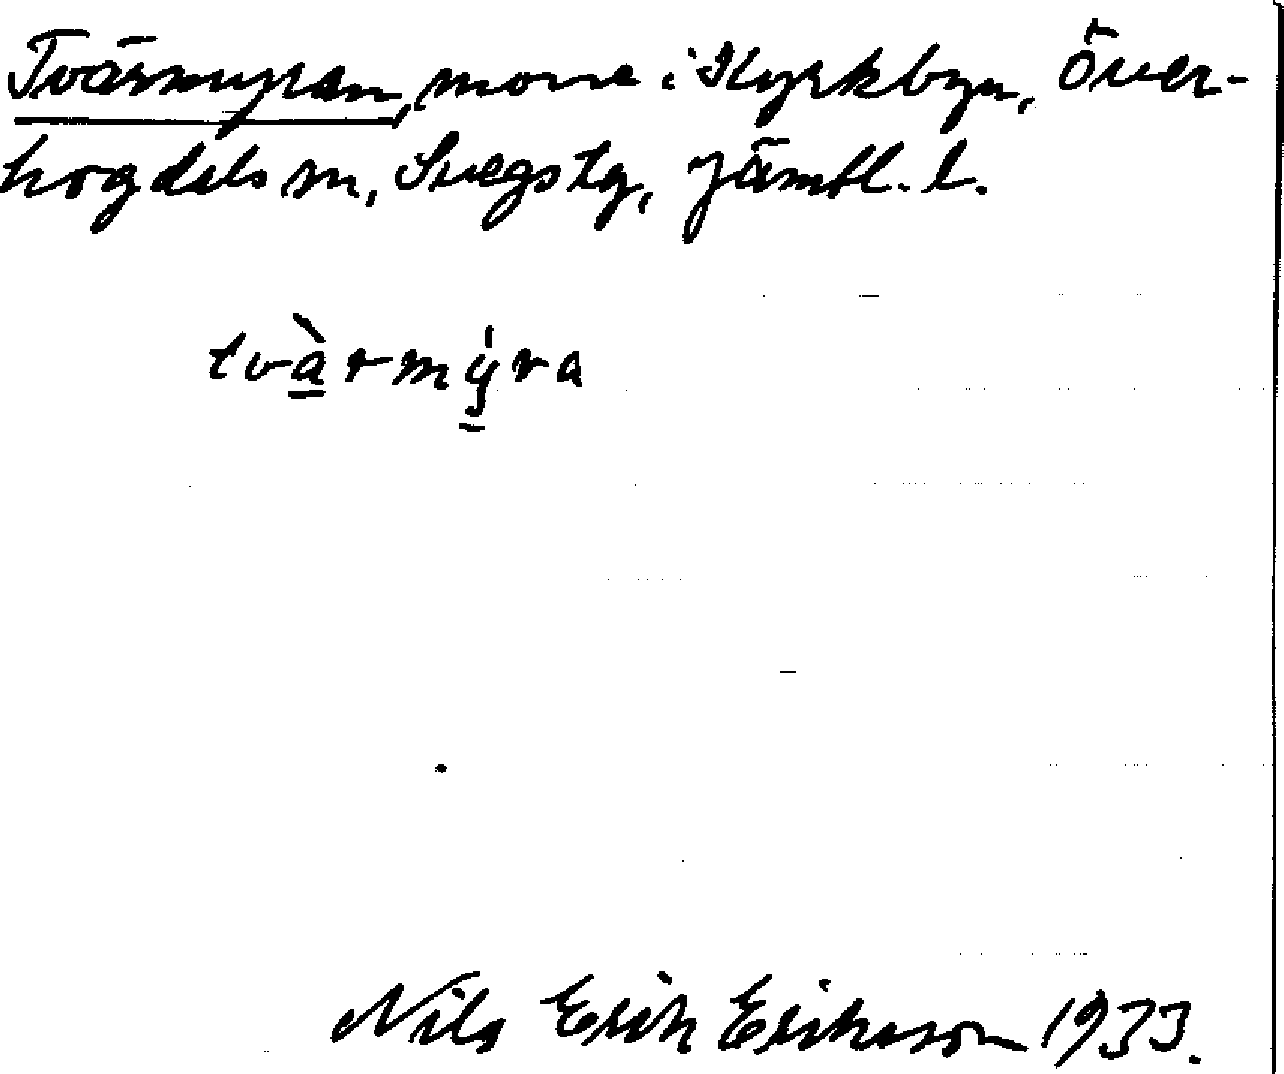 Tvärmyran, morne i Kyrkbyn, Över-
hogdals sn, Svegs tg, Jämtl. l.
tvà̱rmý̱ra
Nils Erik Eriksson 1933.